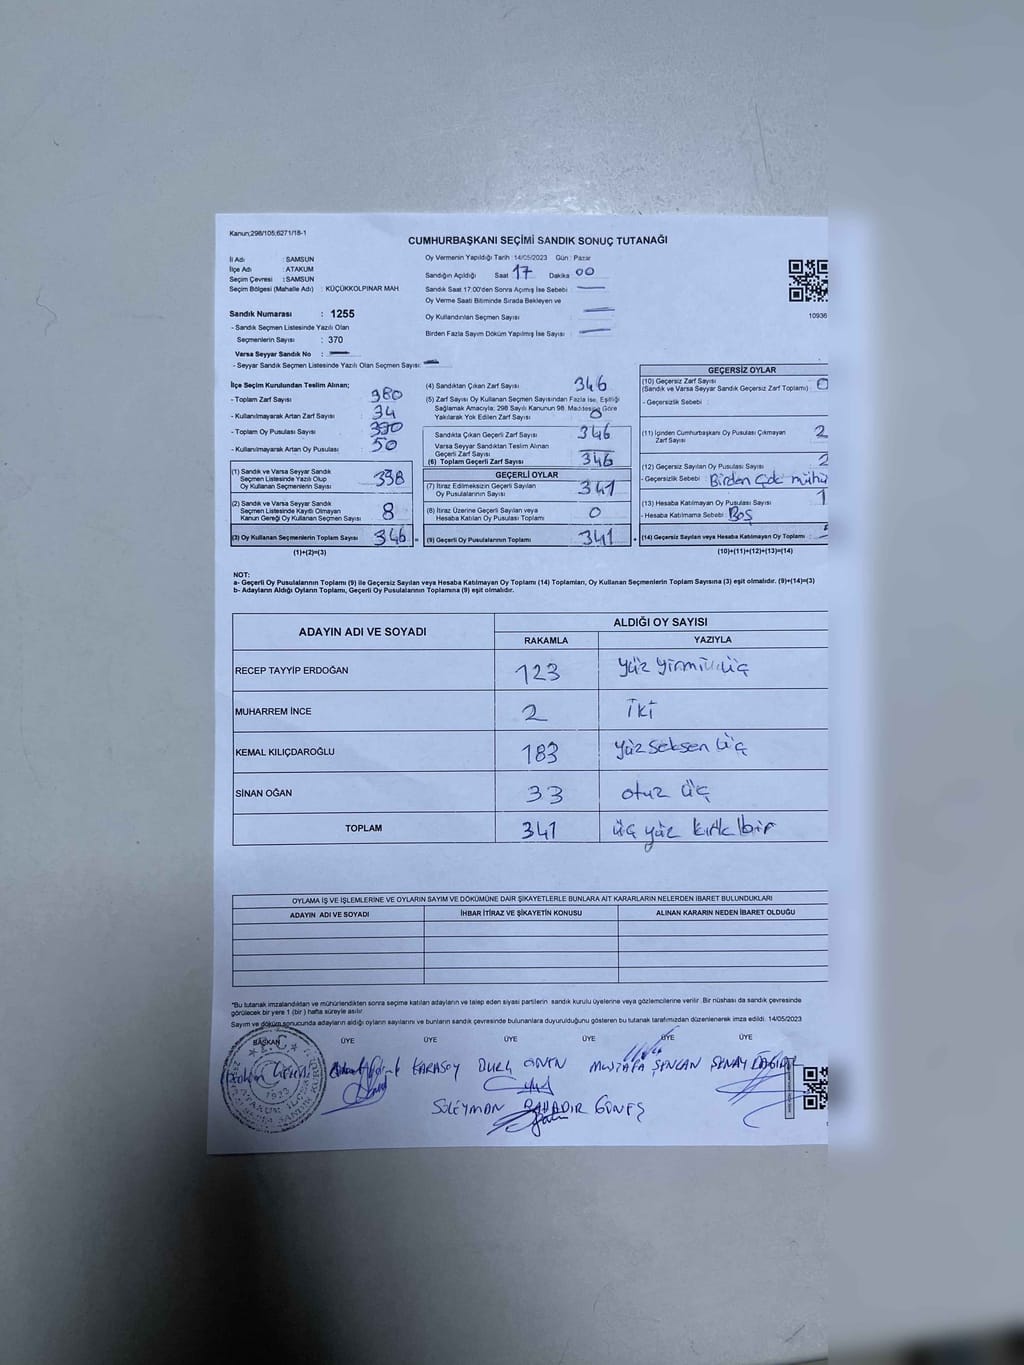 Kanun;298/105;6271/18-1
CUMHURBAŞKANI SEÇİMİ SANDIK SONUÇ TUTANAĞI
İl Adı : SAMSUN
İlçe Adı : ATAKUM
Seçim Çevresi : SAMSUN
Seçim Bölgesi (Mahalle Adı) : KÜÇÜKKOLPINAR MAH
Sandık Numarası : 1255
- Sandık Seçmen Listesinde Yazılı Olan
Seçmenlerin Sayısı : 370
Varsa Seyyar Sandık No :
- Seyyar Sandık Seçmen Listesinde Yazılı Olan Seçmen Sayısı:
Oy Vermenin Yapıldığı Tarih : 14/05/2023 Gün : Pazar
Sandığın Açıldığı Saat 17 Dakika 00
Sandık Saat 17:00'den Sonra Açımış İse Sebebi :
Oy Verme Saati Bitiminde Sırada Bekleyen ve
Oy Kullandırılan Seçmen Sayısı :
Birden Fazla Sayım Döküm Yapılmış İse Sayısı :
10936
İlçe Seçim Kurulundan Teslim Alınan;
- Toplam Zarf Sayısı : 380
- Kullanılmayarak Artan Zarf Sayısı : 34
- Toplam Oy Pusulası Sayısı :
- Kullanılmayarak Artan Oy Pusulası : 50
(1) Sandık ve Varsa Seyyar Sandık
Seçmen Listesinde Yazılı Olup
Oy Kullanan Seçmenlerin Sayısı
(2) Sandık ve Varsa Seyyar Sandık
Seçmen Listesinde Kayıtlı Olmayan
Kanun Gereği Oy Kullanan Seçmen Sayısı 8
(3) Oy Kullanan Seçmenlerin Toplam Sayısı 346
(1)+(2)=(3)
(4) Sandıktan Çıkan Zarf Sayısı : 346
(5) Zarf Sayısı Oy Kullanan Seçmen Sayısından Fazla İse, Eşitliği
Sağlamak Amacıyla; 298 Sayılı Kanunun 98. Maddesine Göre
Yakılarak Yok Edilen Zarf Sayısı : 0
Sandıkta Çıkan Geçerli Zarf Sayısı : 346
Varsa Seyyar Sandıktan Teslim Alınan
Geçerli Zarf Sayısı :
(6) Toplam Geçerli Zarf Sayısı : 346
GEÇERLİ OYLAR
(7) İtiraz Edilmeksizin Geçerli Sayılan
Oy Pusulalarının Sayısı : 341
(8) İtiraz Üzerine Geçerli Sayılan veya
Hesaba Katılan Oy Pusulası Toplamı : 0
(9) Geçerli Oy Pusulalarının Toplamı : 341
GEÇERSİZ OYLAR
(10) Geçersiz Zarf Sayısı
(Sandık ve Varsa Seyyar Sandık Geçersiz Zarf Toplamı) : 0
- Geçersizlik Sebebi :
(11) İçinden Cumhurbaşkanı Oy Pusulası Çıkmayan
Zarf Sayısı : 2
(12) Geçersiz Sayılan Oy Pusulası Sayısı : 2
- Geçersizlik Sebebi : Birden çok mühü
(13) Hesaba Katılmayan Oy Pusulası Sayısı : 1
- Hesaba Katılmama Sebebi : Boş
(14) Geçersiz Sayılan veya Hesaba Katılmayan Oy Toplamı :
(10)+(11)+(12)+(13)=(14)
NOT:
a- Geçerli Oy Pusulalarının Toplamı (9) ile Geçersiz Sayılan veya Hesaba Katılmayan Oy Toplamı (14) Toplamları, Oy Kullanan Seçmenlerin Toplam Sayısına (3) eşit olmalıdır. (9)+(14)=(3)
b- Adayların Aldığı Oyların Toplamı, Geçerli Oy Pusulalarının Toplamına (9) eşit olmalıdır.
ADAYIN ADI VE SOYADI ALDIĞI OY SAYISI
RAKAMLA YAZIYLA
RECEP TAYYİP ERDOĞAN 123 Yüz yirmi üç
MUHARREM İNCE 2 İki
KEMAL KILIÇDAROĞLU 183 Yüz seksen üç
SİNAN OĞAN 33 otuz üç
TOPLAM 341 üç yüz kırk bir
OYLAMA İŞ VE İŞLEMLERİNE VE OYLARIN SAYIM VE DÖKÜMÜNE DAİR ŞİKAYETLERLE BUNLARA AİT KARARLARIN NELERDEN İBARET BULUNDUKLARI
ADAYIN ADI VE SOYADI İHBAR İTİRAZ VE ŞİKAYETİN KONUSU ALINAN KARARIN NEDEN İBARET OLDUĞU
*Bu tutanak imzalandıktan ve mühürlendikten sonra seçime katılan adayların ve talep eden siyasi partilerin sandık kurulu üyelerine veya gözlemcilerine verilir. Bir nüshası da sandık çevresinde
görülecek bir yere 1 (bir ) hafta süreyle asılır.
Sayım ve döküm sonucunda adayların aldığı oyların sayılarını ve bunların sandık çevresinde bulunanlara duyurulduğunu gösteren bu tutanak tarafımızdan düzenlenerek imza edildi. 14/05/2023
BAŞKAN ÜYE ÜYE ÜYE ÜYE ÜYE
KARASOY MUSTAFA ŞENCAN ŞENAY
SÜLEYMAN BAHADIR GÜNEŞ